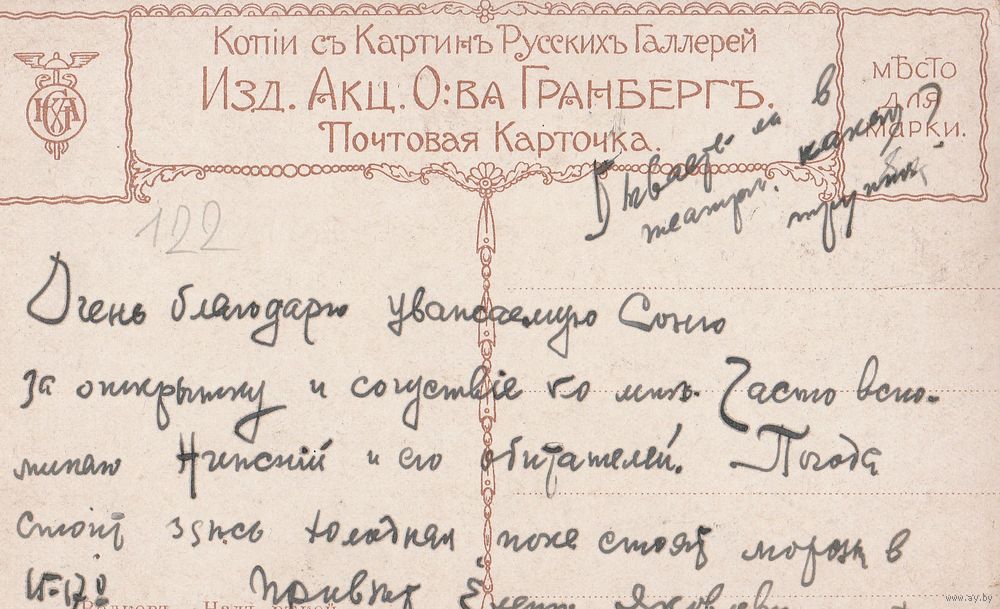 Копіи съ Картинъ Русскихъ Галлерей
Изд. Акц. О:ва Гранбергъ.
Почтовая Карточка.
мѣсто
для
марки.
въ
театръ. какая?
122
Очень благодарю уважаемую Соню
за открытку и сочуствіе ко мнѣ. Часто вспо-
минаю Нинскій и его обитателей. Погода
стоит здѣсь холодная, пока стоят морозы в
15-17° Привѣт Елен. Яковлевн
www.ay.by